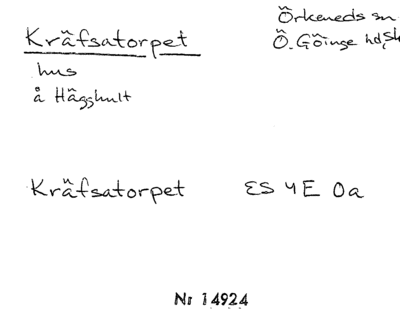 Kräfsatorpet
Örkeneds sn
Ö. Göinge hd, Sk
hus
å Hägghult
Kräfsatorpet ES 4E 0a
Nr 14924